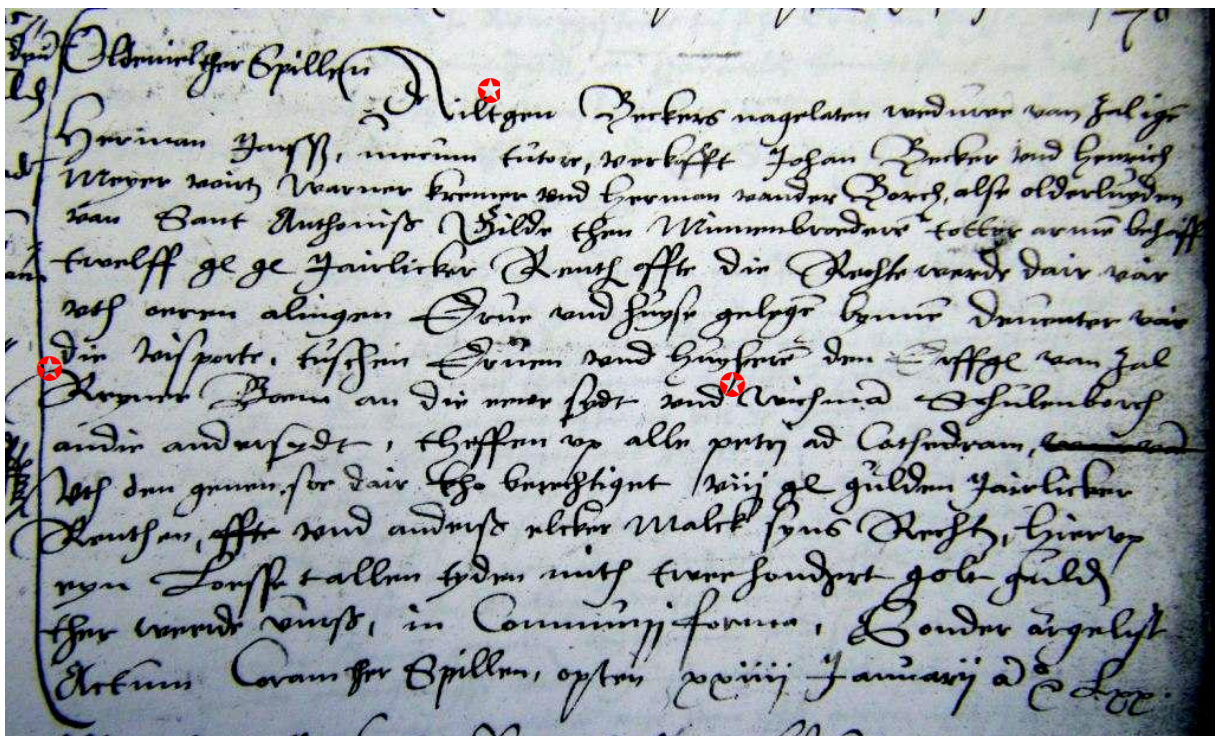 Oldenielther Spillen
Aeiltgen Beckers nagelaten weduwe van Zalige
Herman, mecum tutore, verkofft Johan Becker vnd Henrich
Meyer voirtz Warner kremer vnd Herman vander Borch, alse olderluyden
van Sant Anthoniss Gilde then Minnenbroederē totter armē behoiff
twelff gl gl Jairlicker Renth offte die Rechte werde dair vār
vth oeren alingen Erue vnd huyse gelegē bynnē deuenter vār
die Visporte, tuschen Eruen vnd huyserē den Erffgē van Zal
Reyner Boem an die eene sydt vnd Wichmā Schulenborch
andie andersydt, theffen vp alle petrj ad Cathedram,
Vth den genen, soe dair tho berechtiget viij gl gulden Jairlicker
Renthen, offte vnd anderss elcker Malck syns Rechtz, hier vp
eyn Loesse tallen tyden mith tweehondert golt guldē
ther weerde, in Communj forma, Sonder argelist
Actum Coram her Spillen, opten xxiiij Januarij aō Lxx.